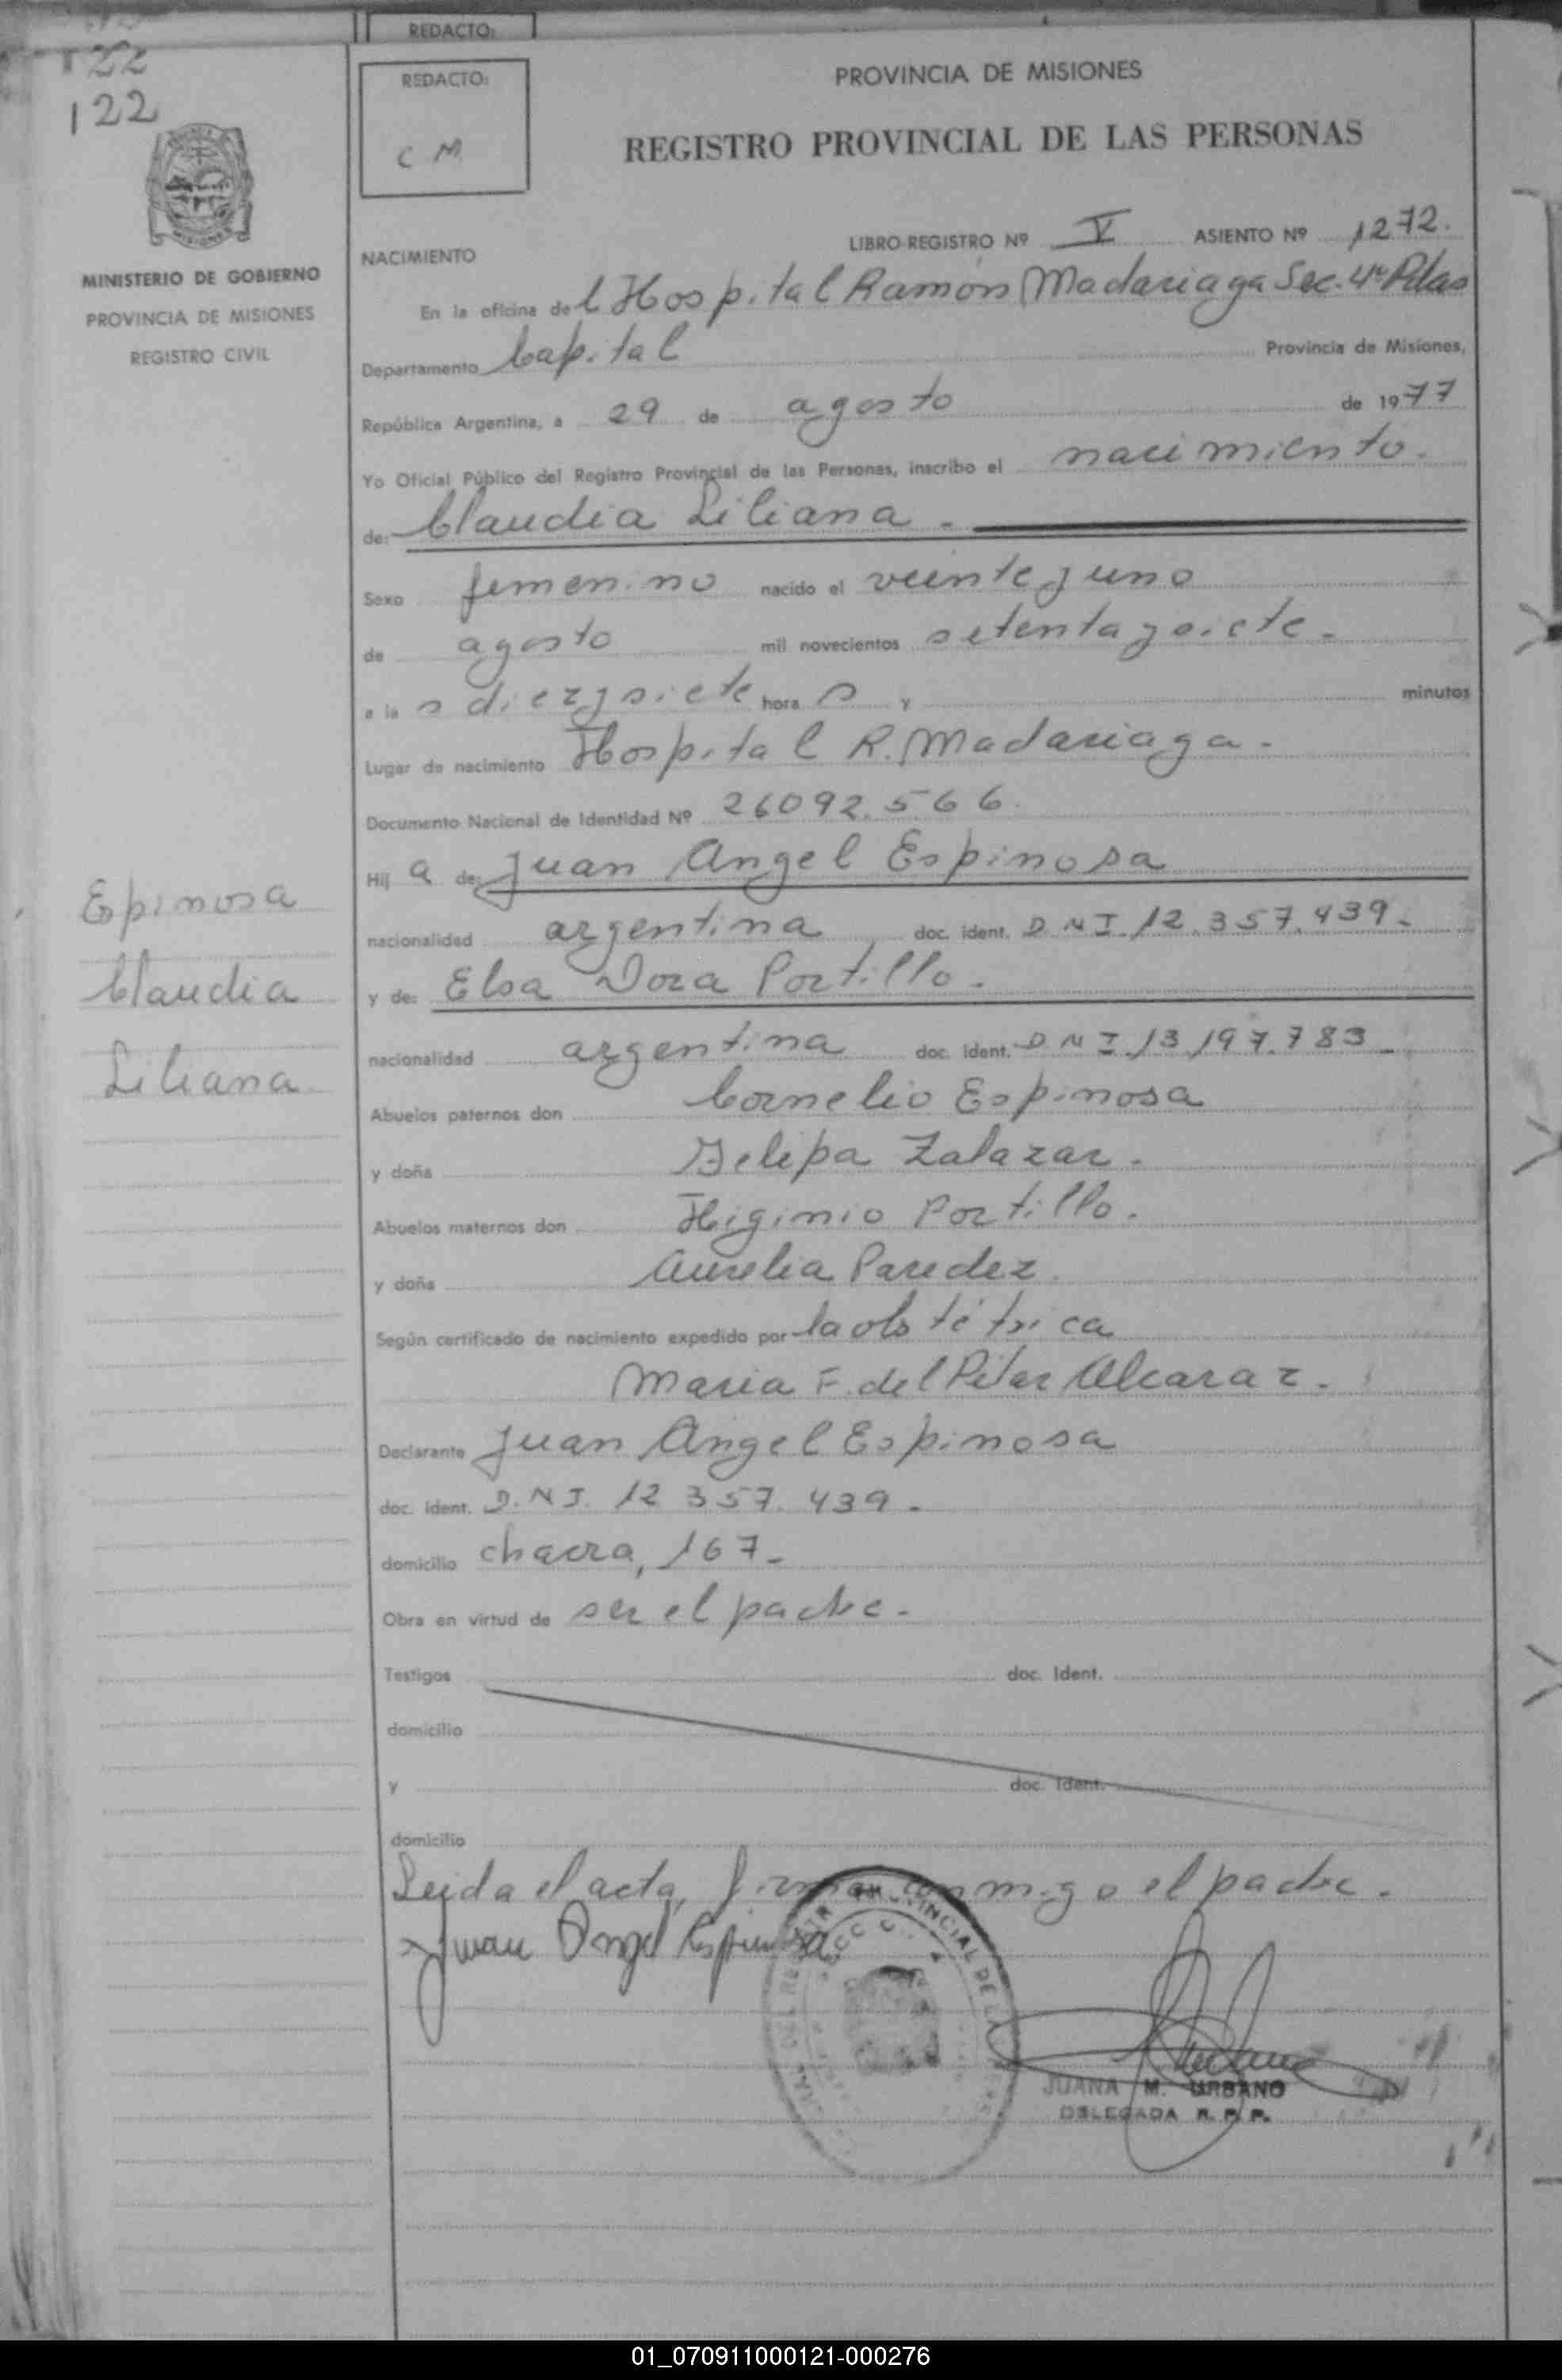 REDACTO:
122
122
REDACTO:
C M.
PROVINCIA DE MISIONES
REGISTRO PROVINCIAL DE LAS PERSONAS
MINISTERIO DE GOBIERNO
PROVINCIA DE MISIONES
REGISTRO CIVIL
LIBRO-REGISTRO Nº V ASIENTO Nº 1272.
NACIMIENTO
En la oficina del Hospital Ramón Madariaga Sec. 4ª Pdas
Departamento Capital Provincia de Misiones,
República Argentina, a 29 de agosto de 1977
Yo Oficial Público del Registro Provincial de las Personas, inscribo el nacimiento.
de: Claudia Liliana.
Sexo femenino nacido el veinte y uno
de agosto mil novecientos setenta y siete.
a las diez y siete horas y minutos
Lugar de nacimiento Hospital R. Madariaga.
Documento Nacional de Identidad Nº 26092.566.
Hija de: Juan Angel Espinosa
nacionalidad argentina doc. ident. D N I. 12.357.439.
y de: Elsa Dora Portillo.
nacionalidad argentina doc. ident. D N I. 13.197.783
Abuelos paternos don Cornelio Espinosa
y doña Felipa Zalazar.
Abuelos maternos don Higinio Portillo.
y doña Aurelia Paredez
Según certificado de nacimiento expedido por la obstétrica
Maria F. del Pilar Alcaraz.
Declarante Juan Angel Espinosa
doc. ident. D.N.I. 12.357.439.
domicilio chacra, 167.
Obra en virtud de ser el padre.
Testigos doc. Ident.
domicilio
y doc. Ident.
domicilio
Leida el acta, firma conmigo el padre.
Juan Angel Espinosa
JUANA M. URBANO
DELEGADA R. P. P.
Espinosa
Claudia
Liliana
01_070911000121-000276